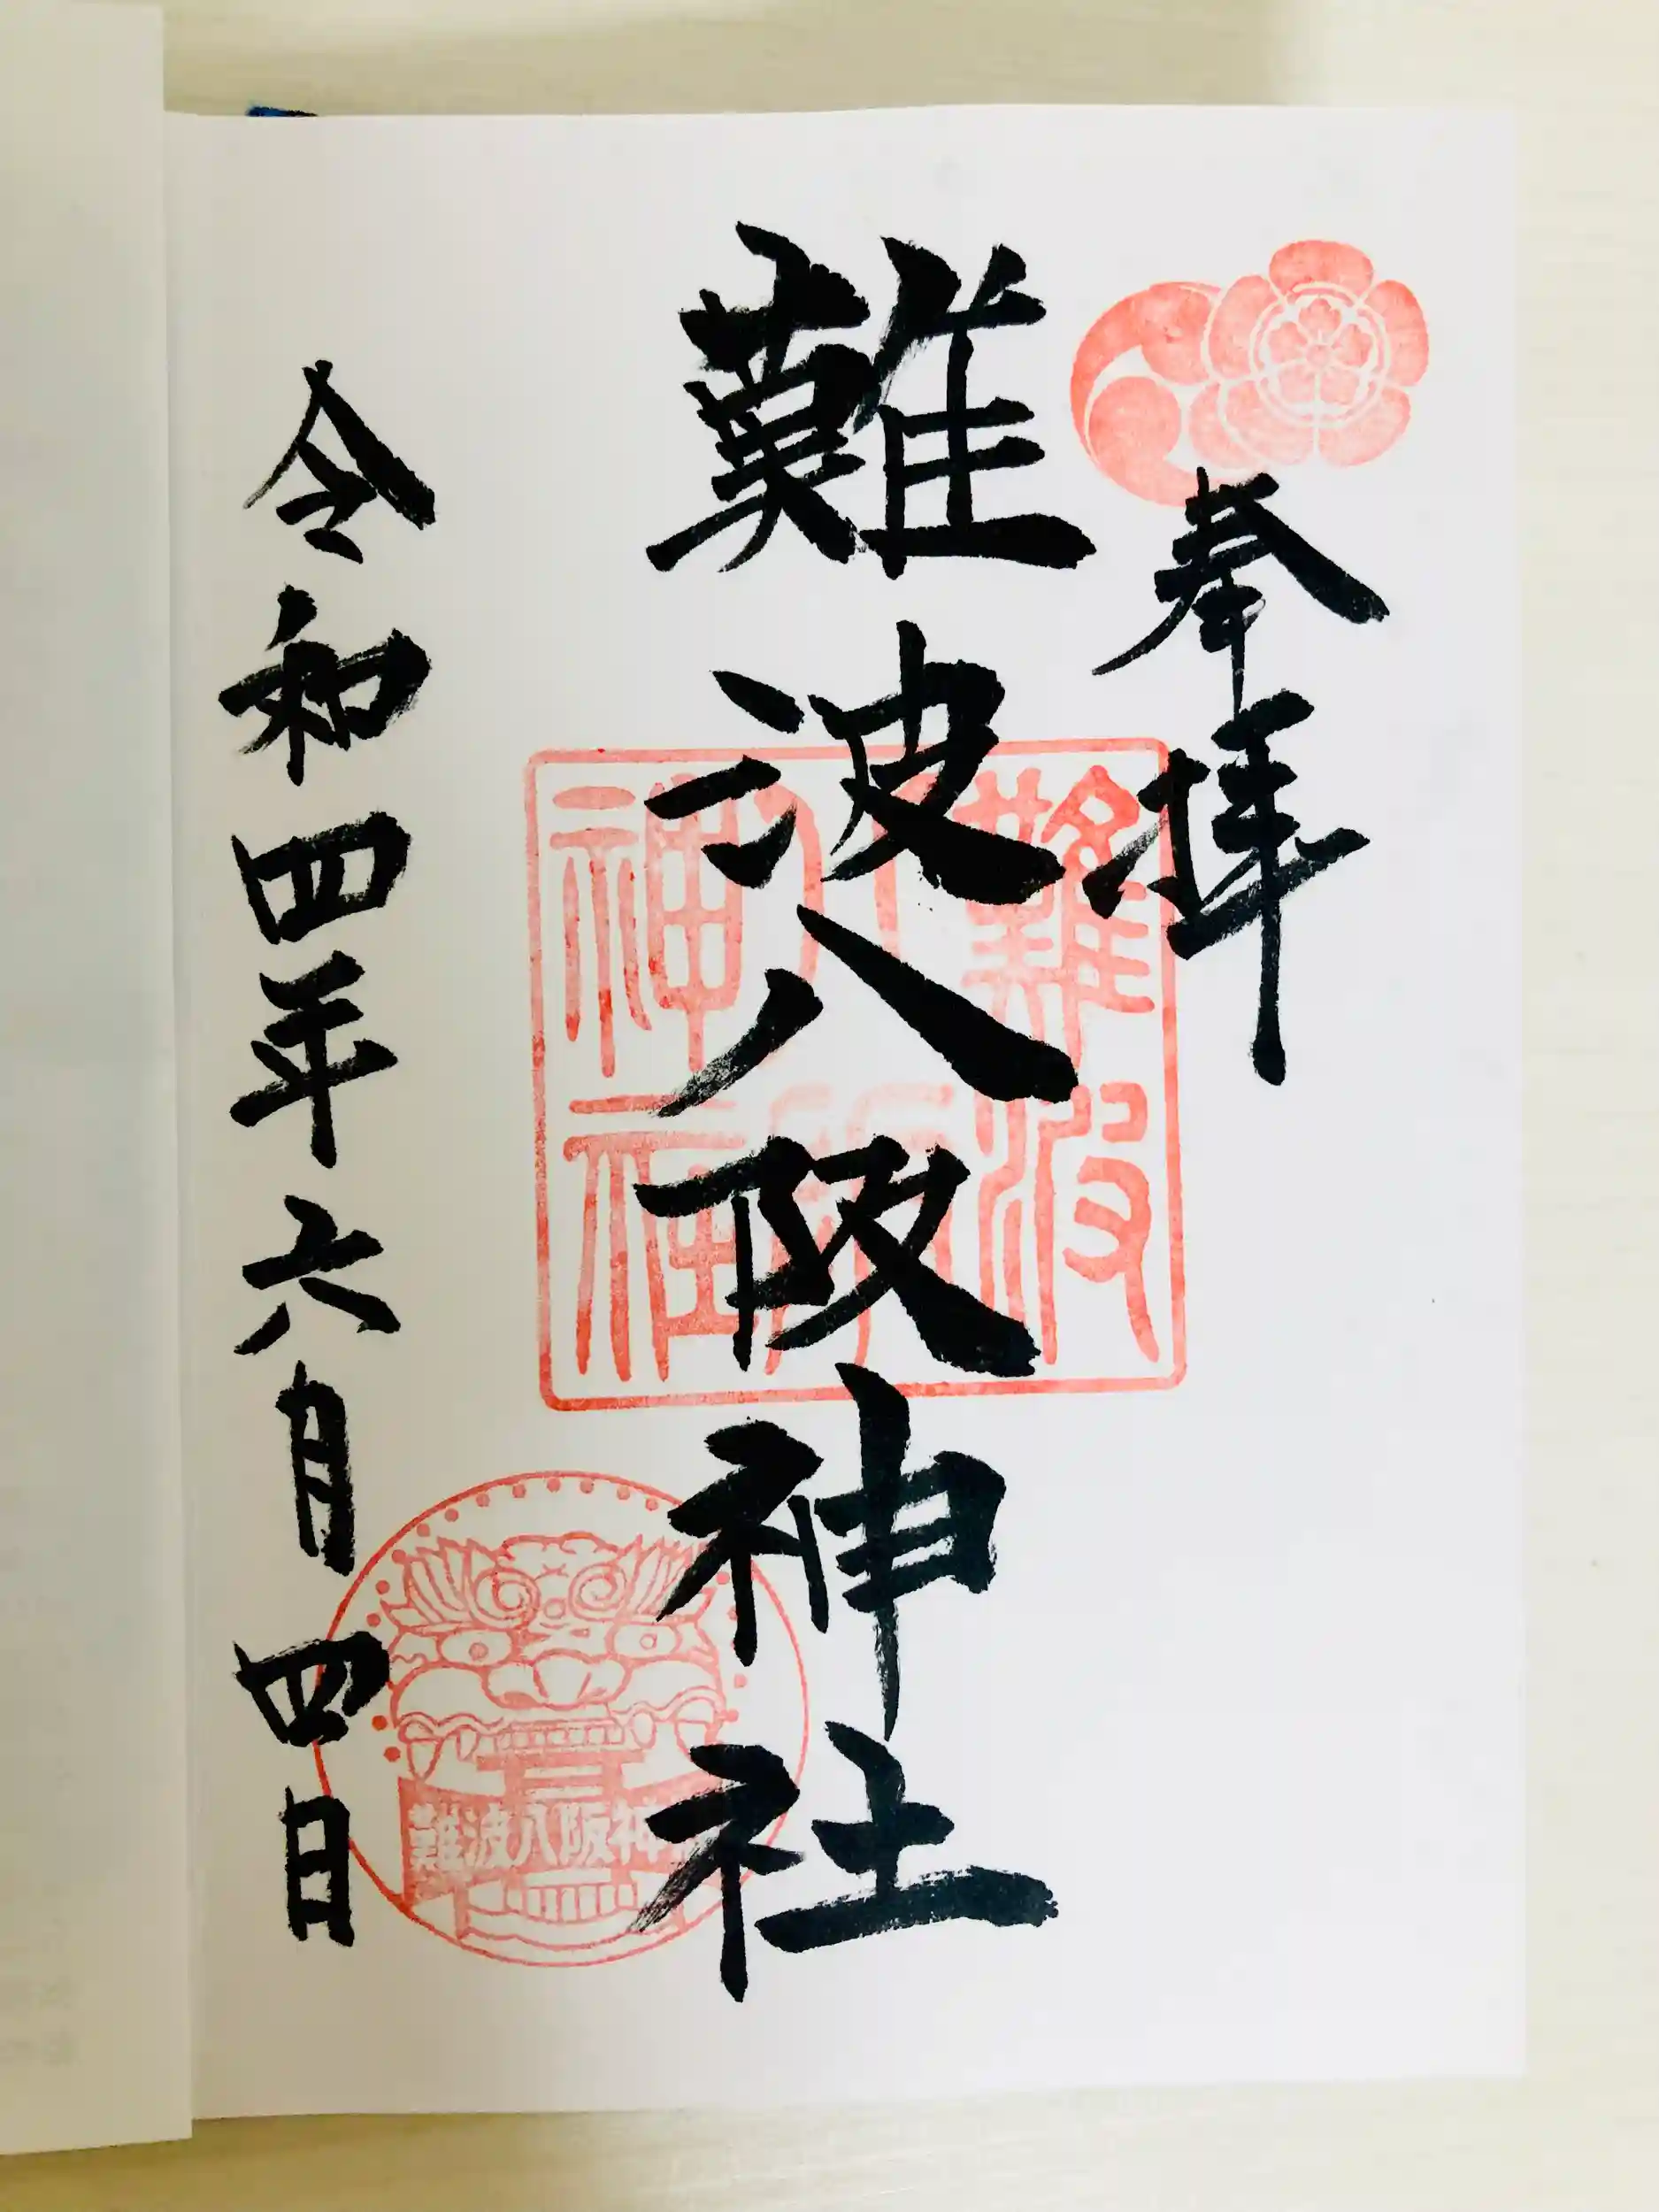 奉拝
難波八阪神社
難波
八阪
神社
難波八阪神
令和四年六月四日